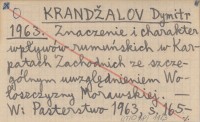 KRANDŽALOV Dymitr
1963. Znaczenie i charakter
wpływów rumuńskich w Kar-
patach Zachodnich ze szcze-
gólnym uwzględnieniem Wo-
łoszczyzny Morawskiej.
W: Pasterstwo 1963, s. 165-